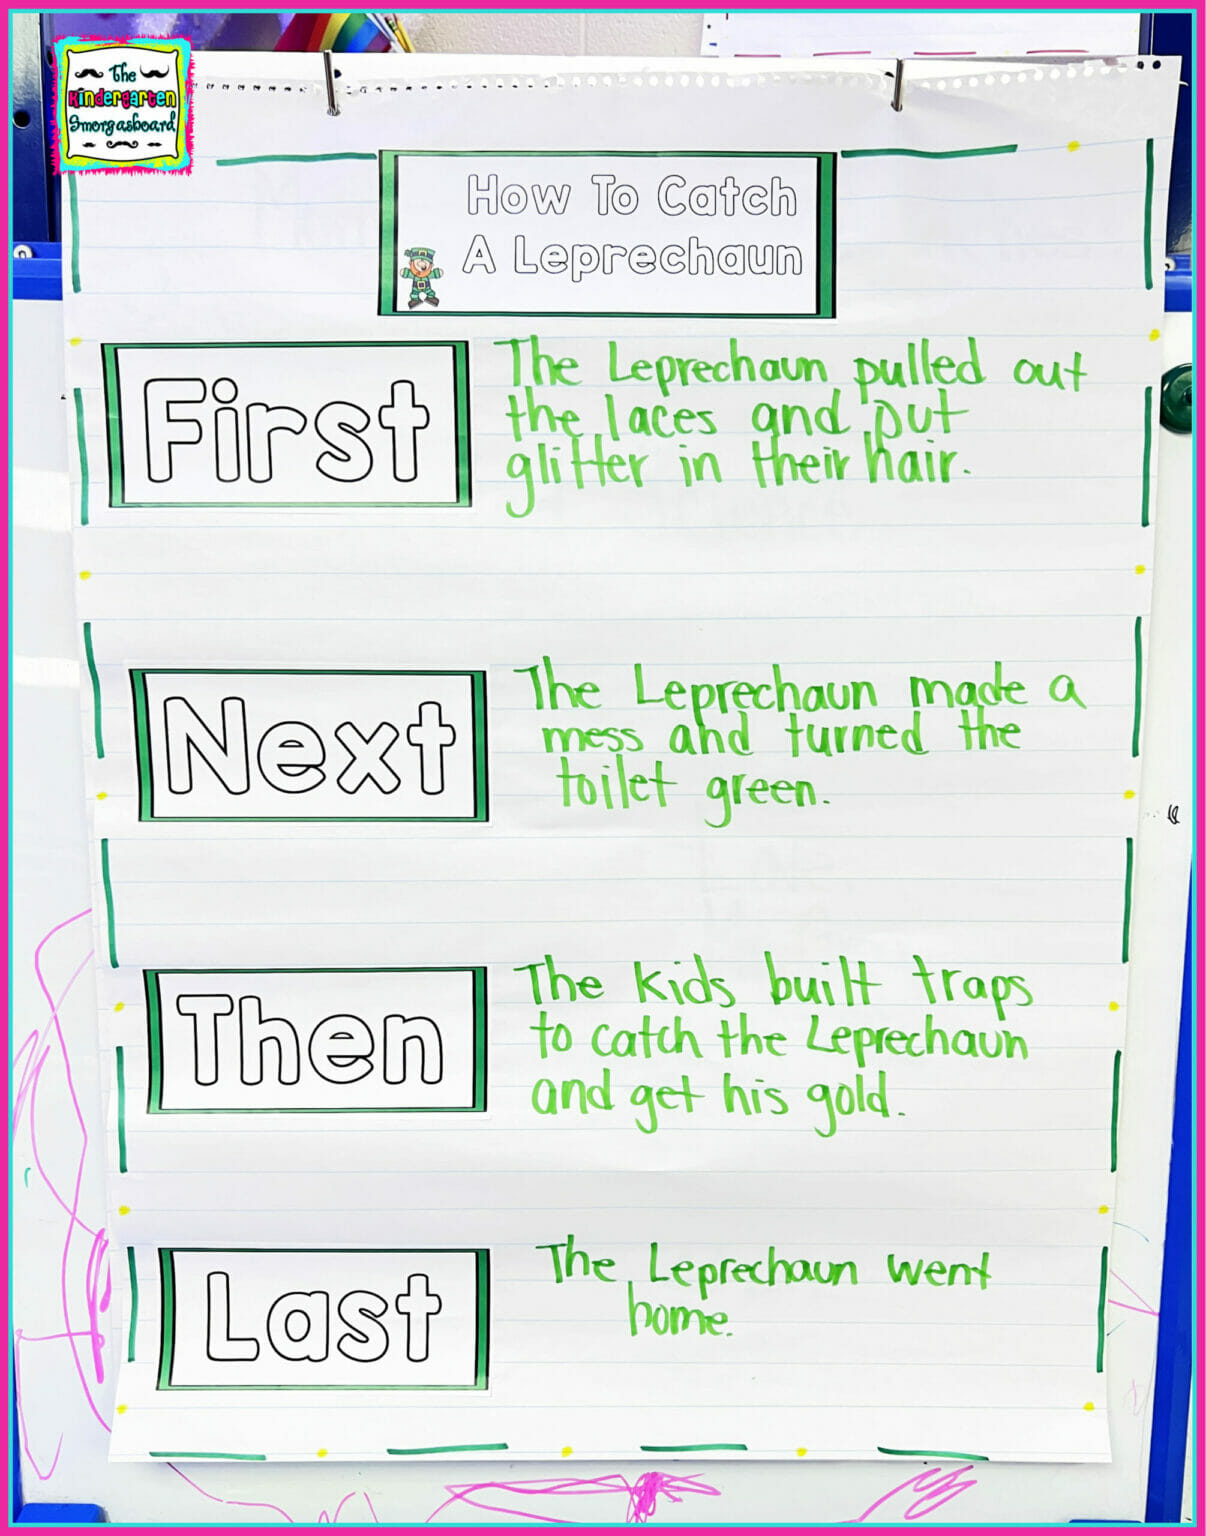 The
Kindergarten
Smorgasboard
How To Catch
A Leprechaun
First
The Leprechaun pulled out
the laces and put
glitter in their hair.
Next
The Leprechaun made a
mess and turned the
toilet green.
Then
The Kids built traps
to catch the Leprechaun
and get his gold.
Last
The Leprechaun went
home.